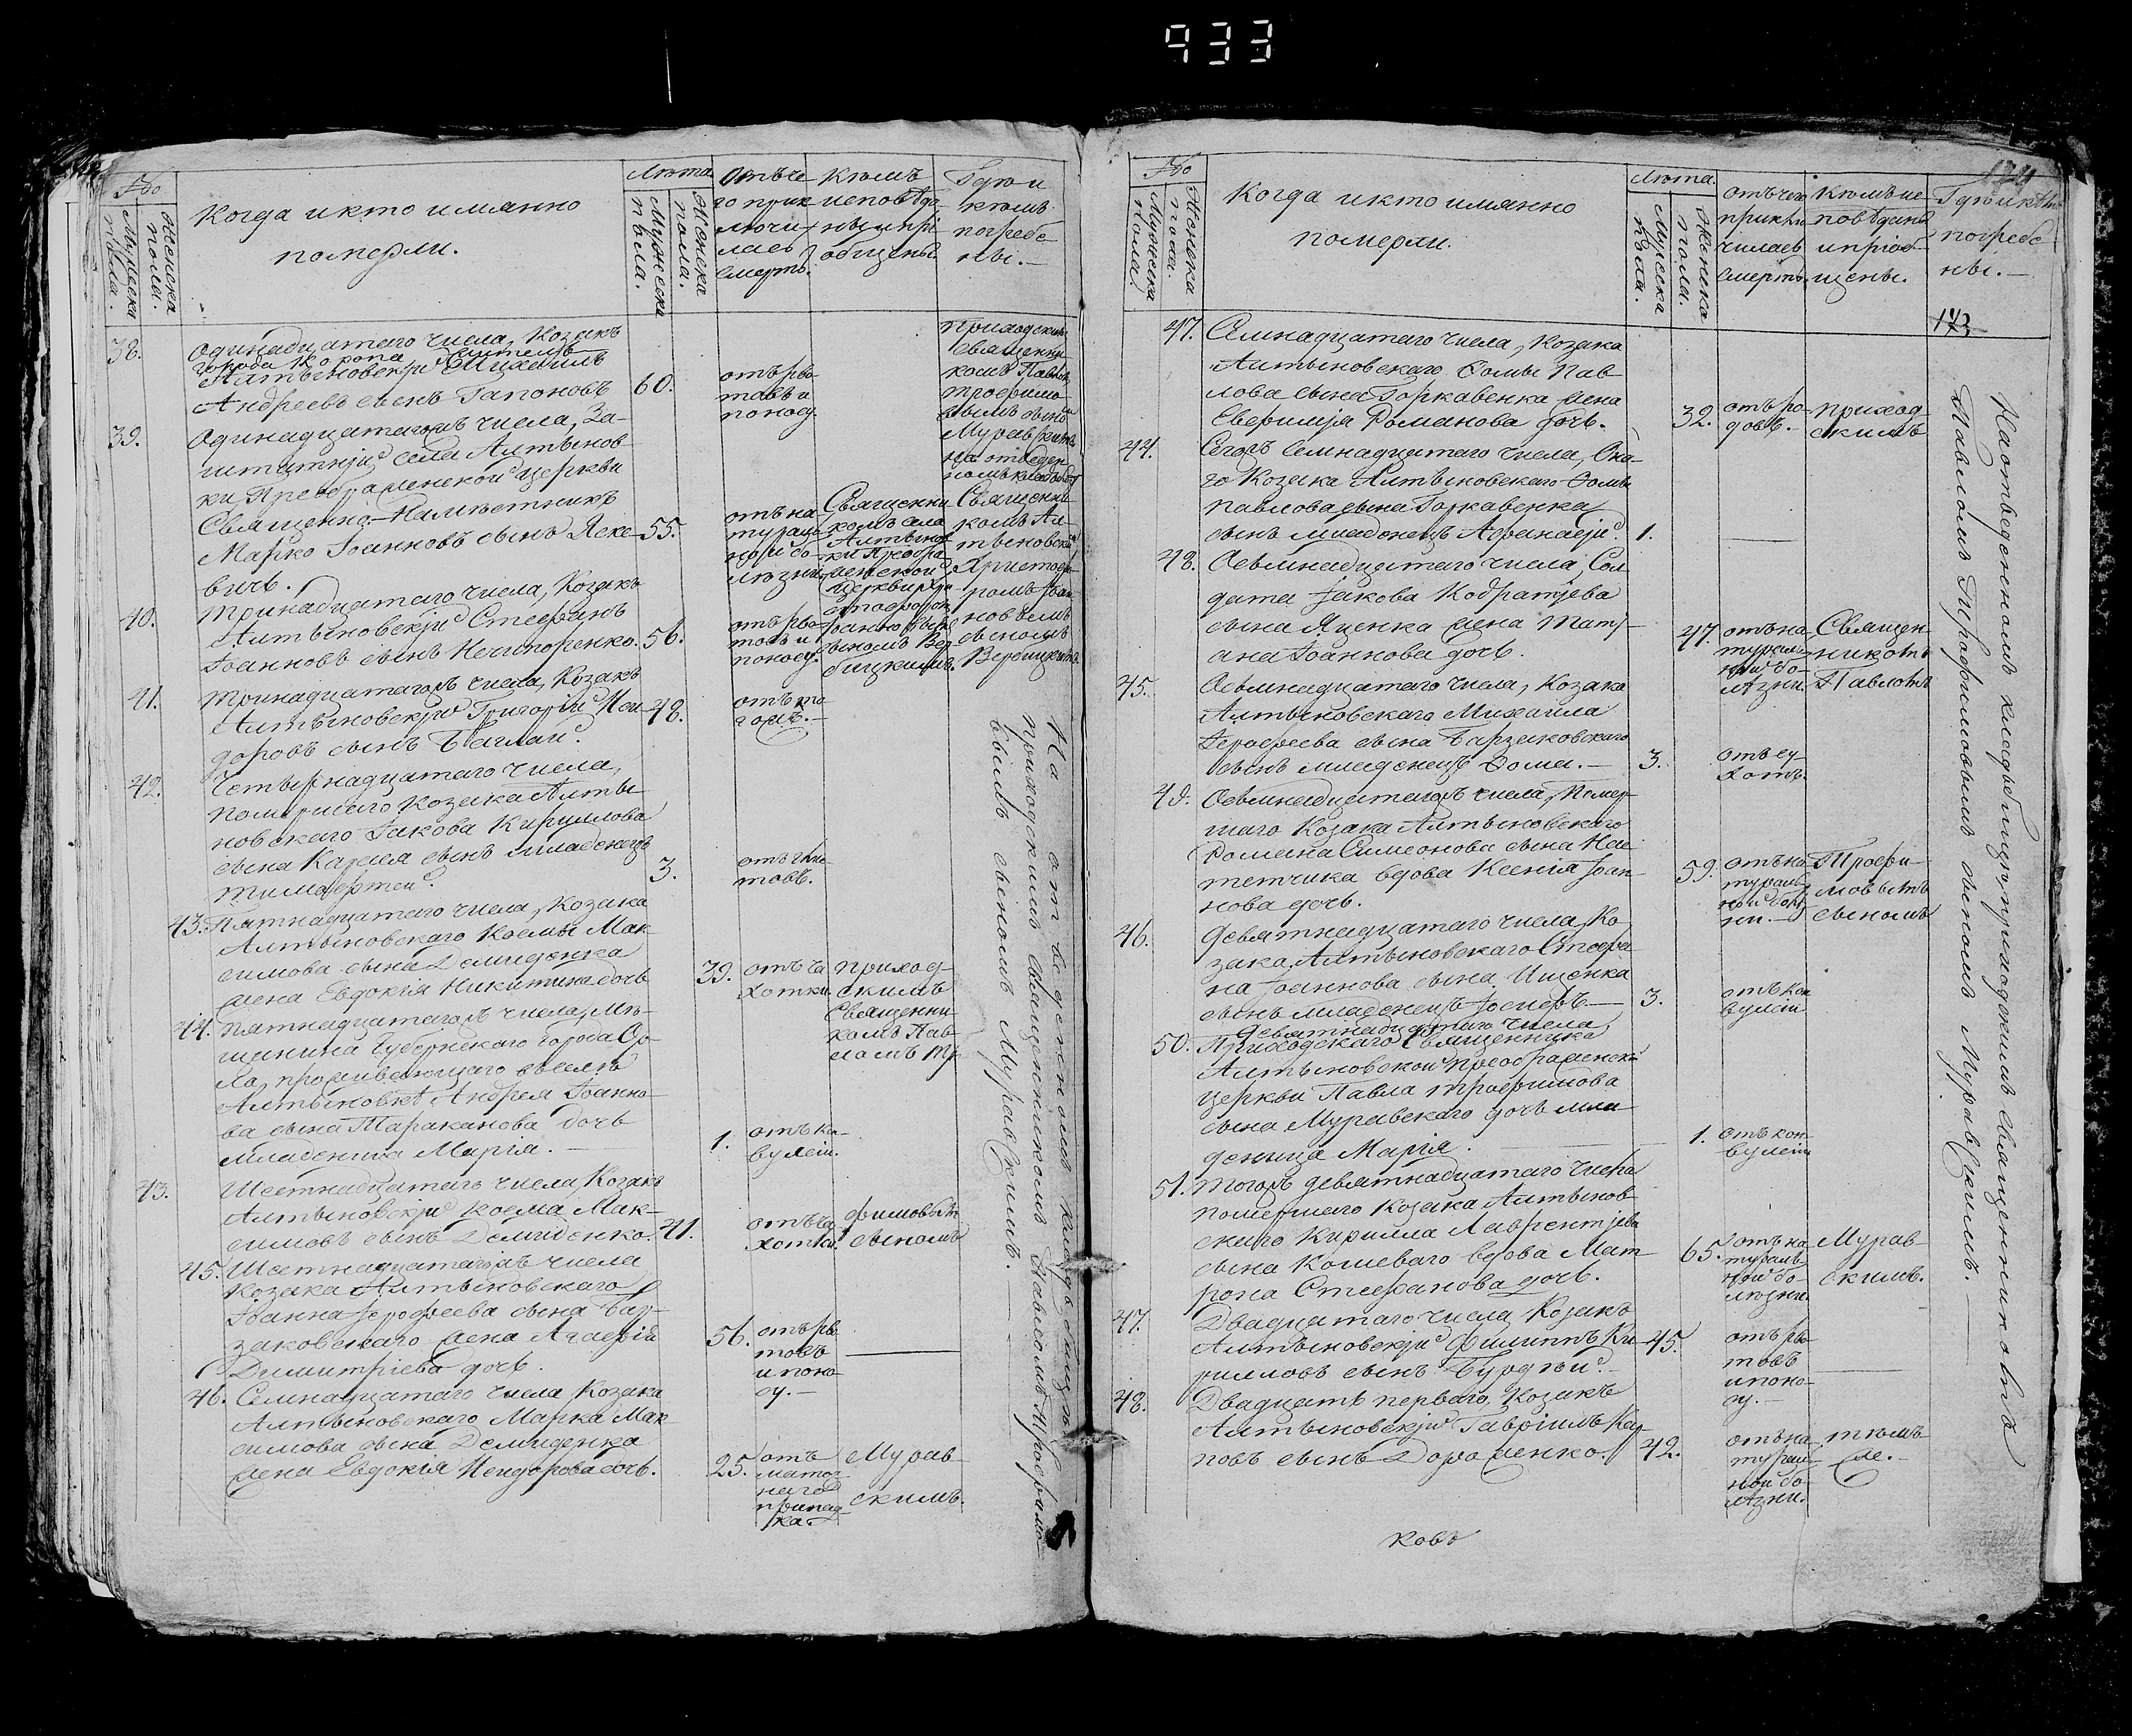 933
№
Мужеска пола.
Женска пола.
Когда и кто имянно
померли.
Лѣта
Мужеска пола.
Женска пола.
Отъ че
го прик
лючи
лась
смерть.
Кѣмъ
исповѣда
ны и прі
общены
Гдѣ и
кѣмъ
погребе
ны.
38.
Одинадцатаго числа, Козакъ
города Коропа житель
Алтыновскій Михаилъ
Андреевъ сынъ Гапоновъ
60.
отъ рво
товъ и
поносу.
приходским
священни
комъ Павлом
Трофимо
вымъ сыном
Муравскимъ
на отведен
номъ кладбищ
39.
Одинадцатагожъ числа, За-
штатній села Алтынов
ки Преображенской церкви
Священно-Намѣстникъ
Марко Іоанновъ сынъ Яске-
вичъ.
55.
отъ на
турал
ной бо
лѣзни
Священни
комъ села
Алтынов
ки Преобра
женской
церкви Хри
стофором
Іоанновым
сыномъ Вер
бицкимъ.
Священни
комъ Ал
тыновским
Христофо
ромъ Іоан
новымъ
сыномъ
Вербицкимъ
40.
Тринадцатаго числа, Козакъ
Алтыновскій Стефанъ
Іоанновъ сынъ Нечипоренко.
56.
отъ рво
товъ и
поносу.
41.
Тринадцатагожъ числа, Козакъ
Алтыновскій Григорій Иси-
доровъ сынъ Баглай.
48.
отъ то
гожъ.
42.
Четырнадцатаго числа,
помершаго Козака Алты
новского Іакова Кириллова
сына Карпея сынъ младенецъ
Тимофей.
3.
отъ гли
стовъ.
43. Пятнадцатаго числа, Козака
Алтыновскаго Космы Мак-
симова сына Демиденка
жена Евдокія Никитина дочь
39.
отъ ча
хотки.
приход-
скимъ
Священни
комъ Пав
ломъ Тр
44. Пятнадцатагожъ числа, Мѣ-
щанина Губернскаго города Ор-
ла, проживающаго въ селѣ
Алтыновкѣ Андрея Іоанно-
ва сына Тараканова дочь
младеница Марія.
1.
отъ ко-
вулсіи.
43.
Шестнадцатаго числа, Козакъ
Алтыновскій Косма Мак-
симовъ сынъ Демиденко.
41.
отъ ча
хотки.
фимовым
сыномъ
45. Шестнадцатагожъ числа
Козака Алтыновскаго
Іоанна Іерофеева сына Бар-
заковскаго жена Агафія
Димитріева дочь.
56.
отъ рво
товъ
и поно
су.
46. Семнадцатаго числа Козака
Алтыновскаго Марка Мак
симова сына Демиденка
жена Евдокія Исидорова дочь.
25.
отъ
маточ
наго
припад
ка.
Мурав
скимъ.
На отведенномъ кладбищѣ
приходскимъ священникомъ Павломъ Трофимо
вымъ сыномъ Муравскимъ.
№
Мужеска пола.
Женска пола.
Когда и кто имянно
померли.
Лѣта.
Мужеска пола.
Женска пола.
Отъ чего
приклю
чилась
смерть.
Кѣмъ ис
повѣдан
и пріоб-
щены.
Гдѣ и кѣм
погребе
ны.
173
47. Семнадцатаго числа, Козака
Алтыновскаго Фомы Пав-
лова сына Горкавенка жена
Евфимія Романова дочь.
32.
отъ ро
довъ.
приход
скимъ
44.
Тогожъ Семнадцатаго числа, Она-
го Козака Алтыновскаго Фомы
Павлова сына Горкавенка
сынъ младенецъ Афанасій.
1.
48.
Осьмнадцатаго числа, Сол
дата Іакова Кодратіева
сына Яценка жена Тать-
ана Іоаннова дочь.
47.
отъ на
турал
ной бо
лѣзни.
Священ-
никомъ
Павломъ
45.
Осьмнадцатаго числа, Козака
Алтыновскаго Михаила
Іерофеева сына Барзаковскаго
сынъ младенецъ Фома.
3.
отъ су-
хотъ.
49. Осьмнадцатагожъ числа, Помер-
шаго Козака Алтыновскаго
Романа Симеонова сына
вдова Ксенія Іоан-
нова дочь.
59.
отъ на
турал
ной болѣ
зни.
Трофи-
мовымъ
сыномъ
46.
Девятнадцатаго числа, Ко
зака Алтыновскаго Стефа
на Іоаннова сына Ищенка
сынъ младенецъ Іосифъ
3.
отъ кон
вулсіи
50.
Девятнадцатаго числа,
Приходскаго Священника
Алтыновской Преображенской
церкви Павла Трофимова
сына Муравскаго дочь мла
деница Марія.
1.
отъ кон-
вулсіи
51. Тогожъ девятнадцатаго числа
помершаго Козака Алтынов
скаго Кирилла Лаврентіева
сына Кошеваго вдова Мат
рона Стефанова дочь.
65.
отъ на
турал
ной бо-
лѣзни.
Мурав
скимъ.
47.
Двадцатаго числа Козакъ
Алтыновскій Филиппъ Ки
рилловъ сынъ Бурдюй.
45.
отъ рво
товъ
и поно-
су.
48.
Двадцать перваго, Козакъ
Алтыновскій Гавріилъ Кар
повъ сынъ Дорошенко.
42.
отъ на
турал
ной бо
лѣзни.
тѣмъ
же.
На отведенномъ кладбищѣ, приходскимъ священникомъ
Павломъ Трофимовымъ сыномъ Муравскимъ.
ковъ